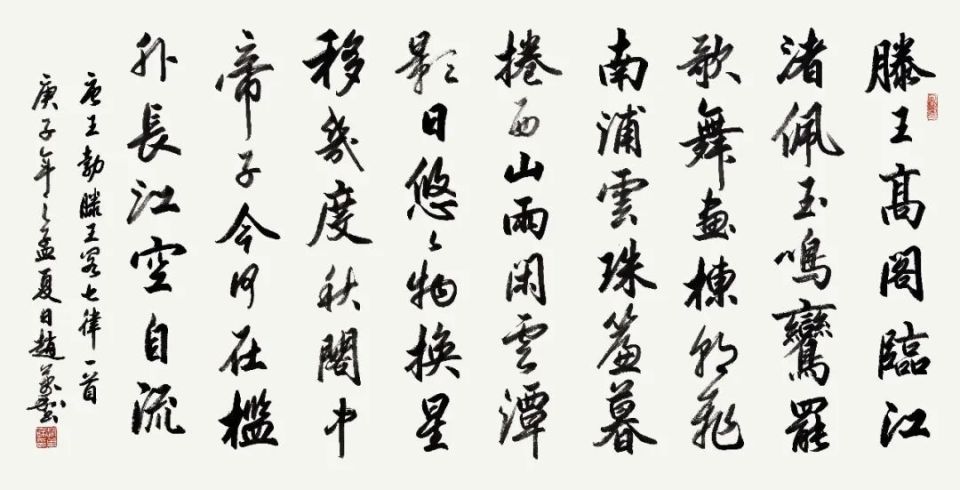 滕王髙閣臨江
渚佩玉鳴鸞罷
歌舞畫棟朝飛
南浦雲珠簾暮
捲西山雨閑雲潭
影日悠々物換星
移幾度秋閣中
帝子今何在檻
外長江空自流
唐王勃滕王閣七律一首
庚子年之孟夏日趙